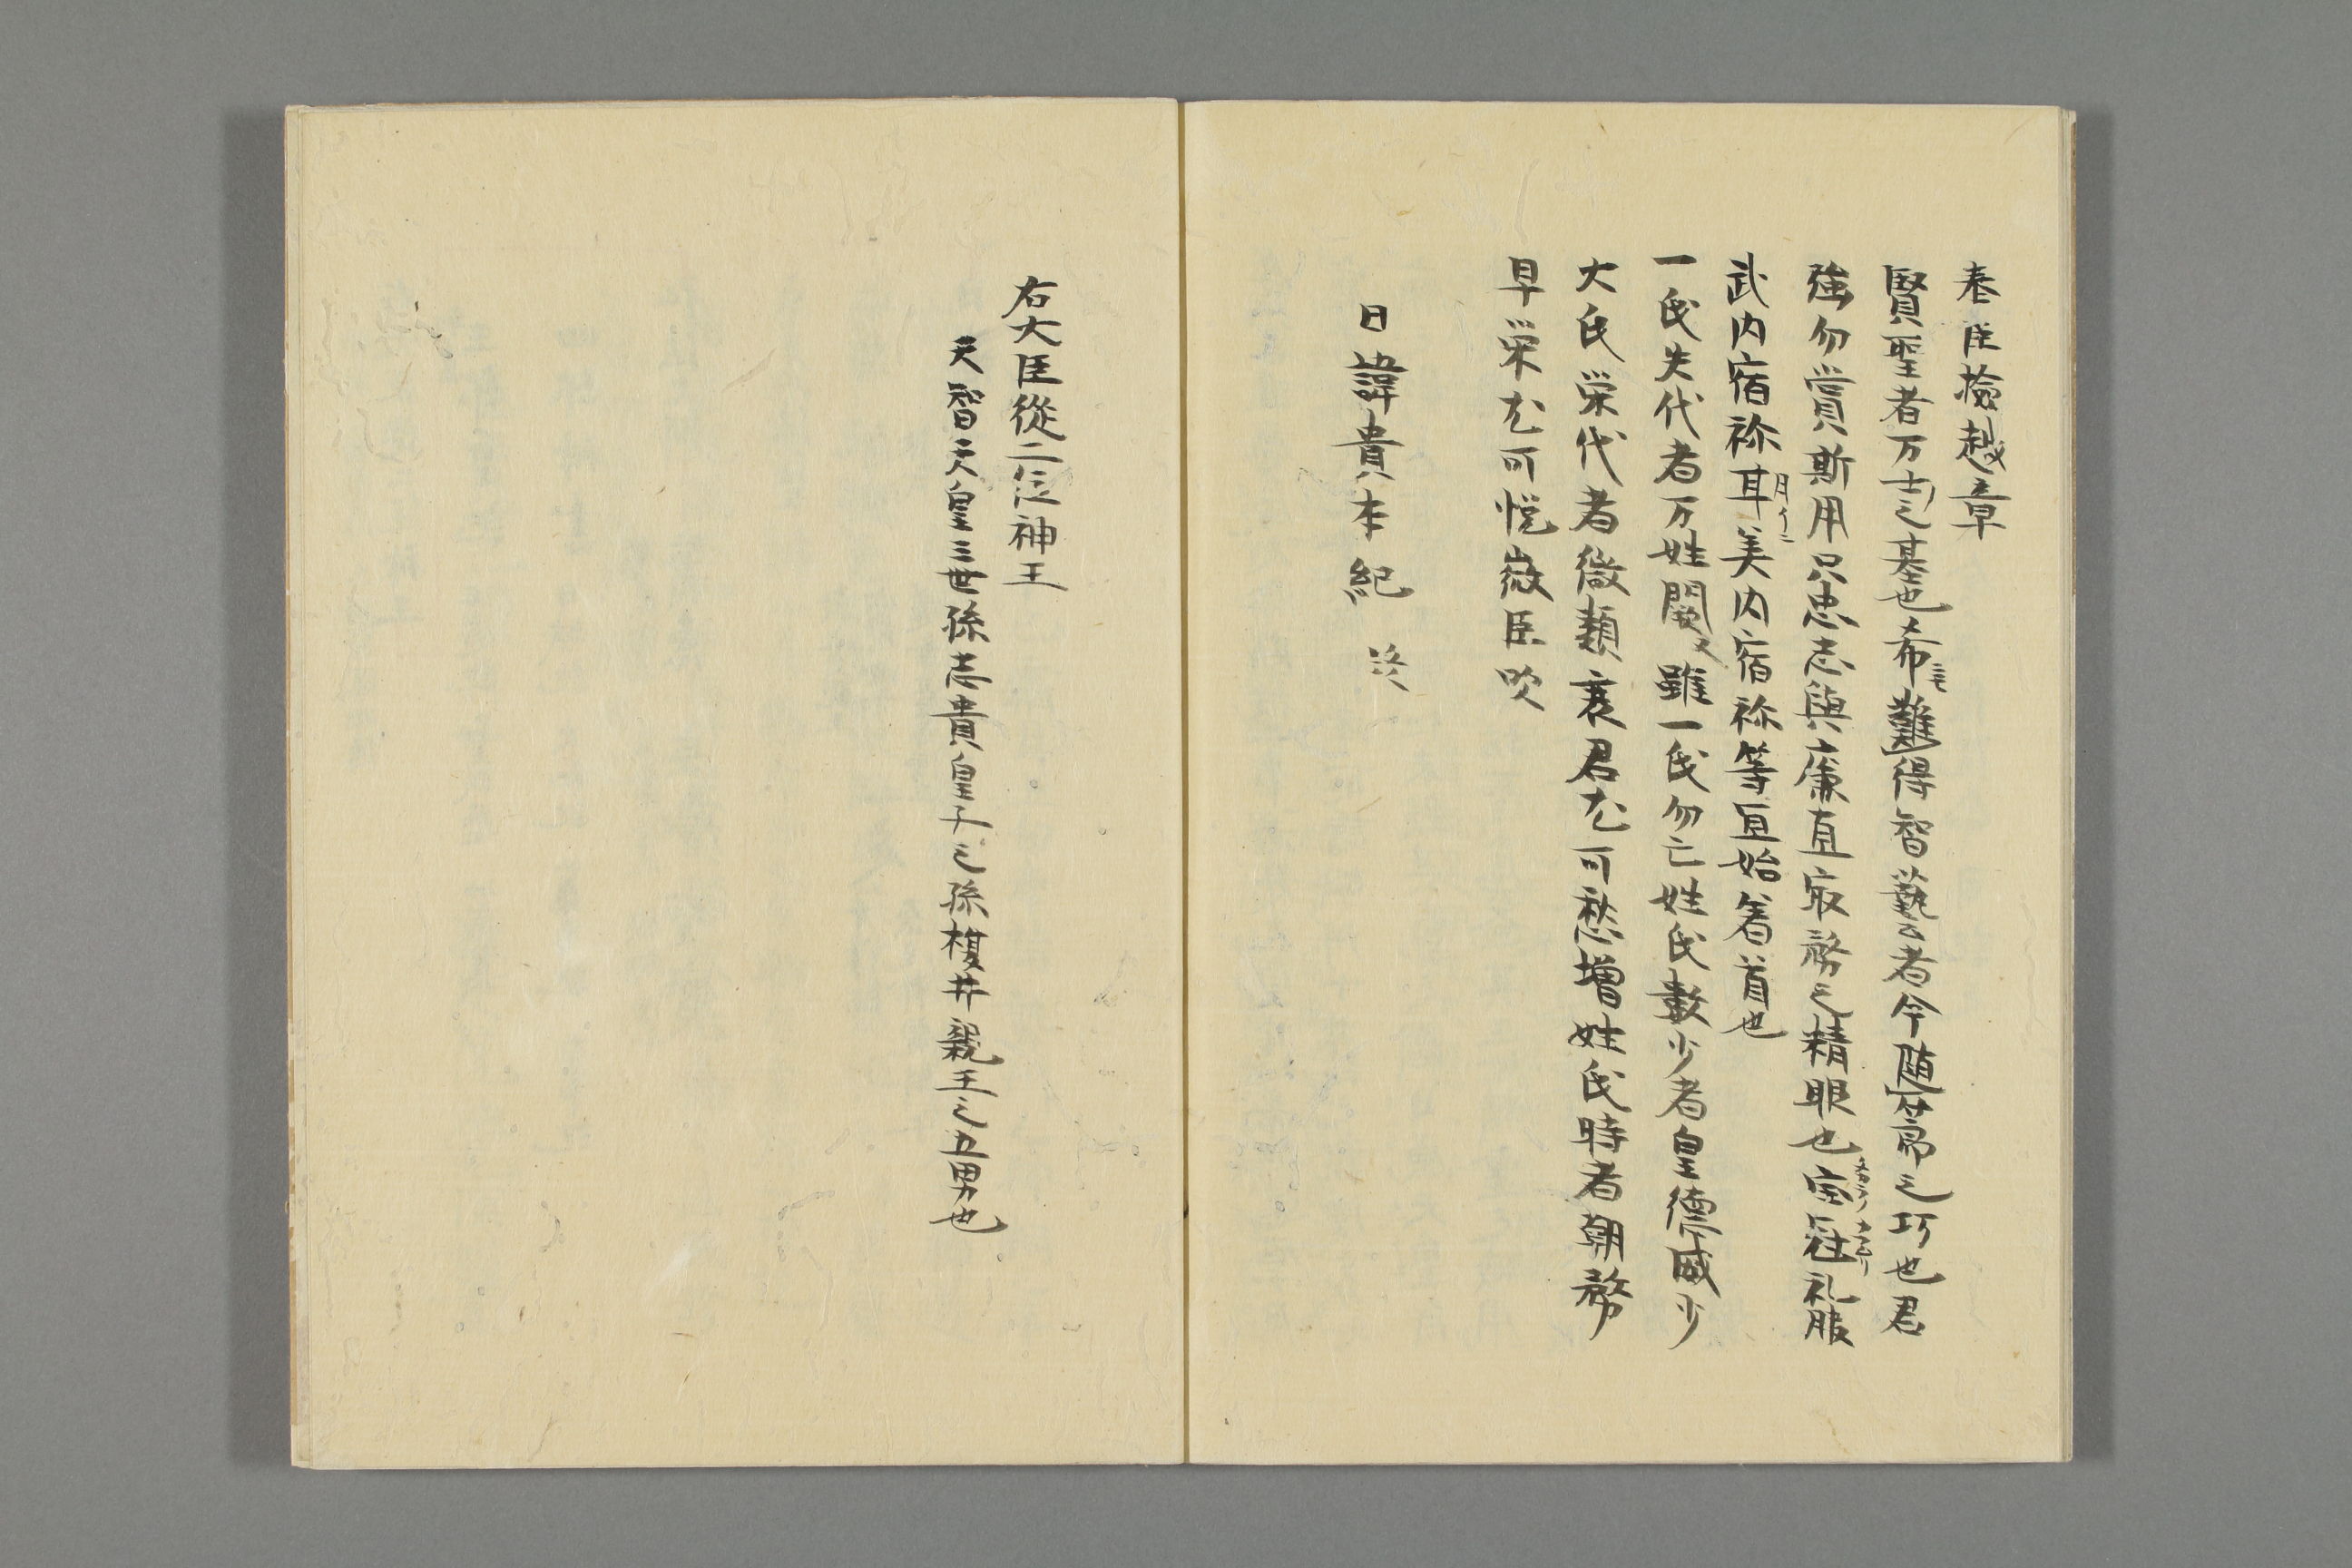 奉臣撿趣章
賢聖者万士之基也希難得智藝者今随節之巧也君
強勿賞斯用只忠志與廉直最務之精眼也宝冠礼服
武内宿祢耳美内宿祢等直始着首也
一氏失代者万姓闕雖一氏勿亡姓氏數少者皇德威少
大氏栄代者微類衰君尤可愁増姓氏時者朝務
早栄尤可悦微臣吹
日諱貴本紀 終
右大臣從二位神王
天智天皇三世孫志貴皇子之孫榎井親王之五男也